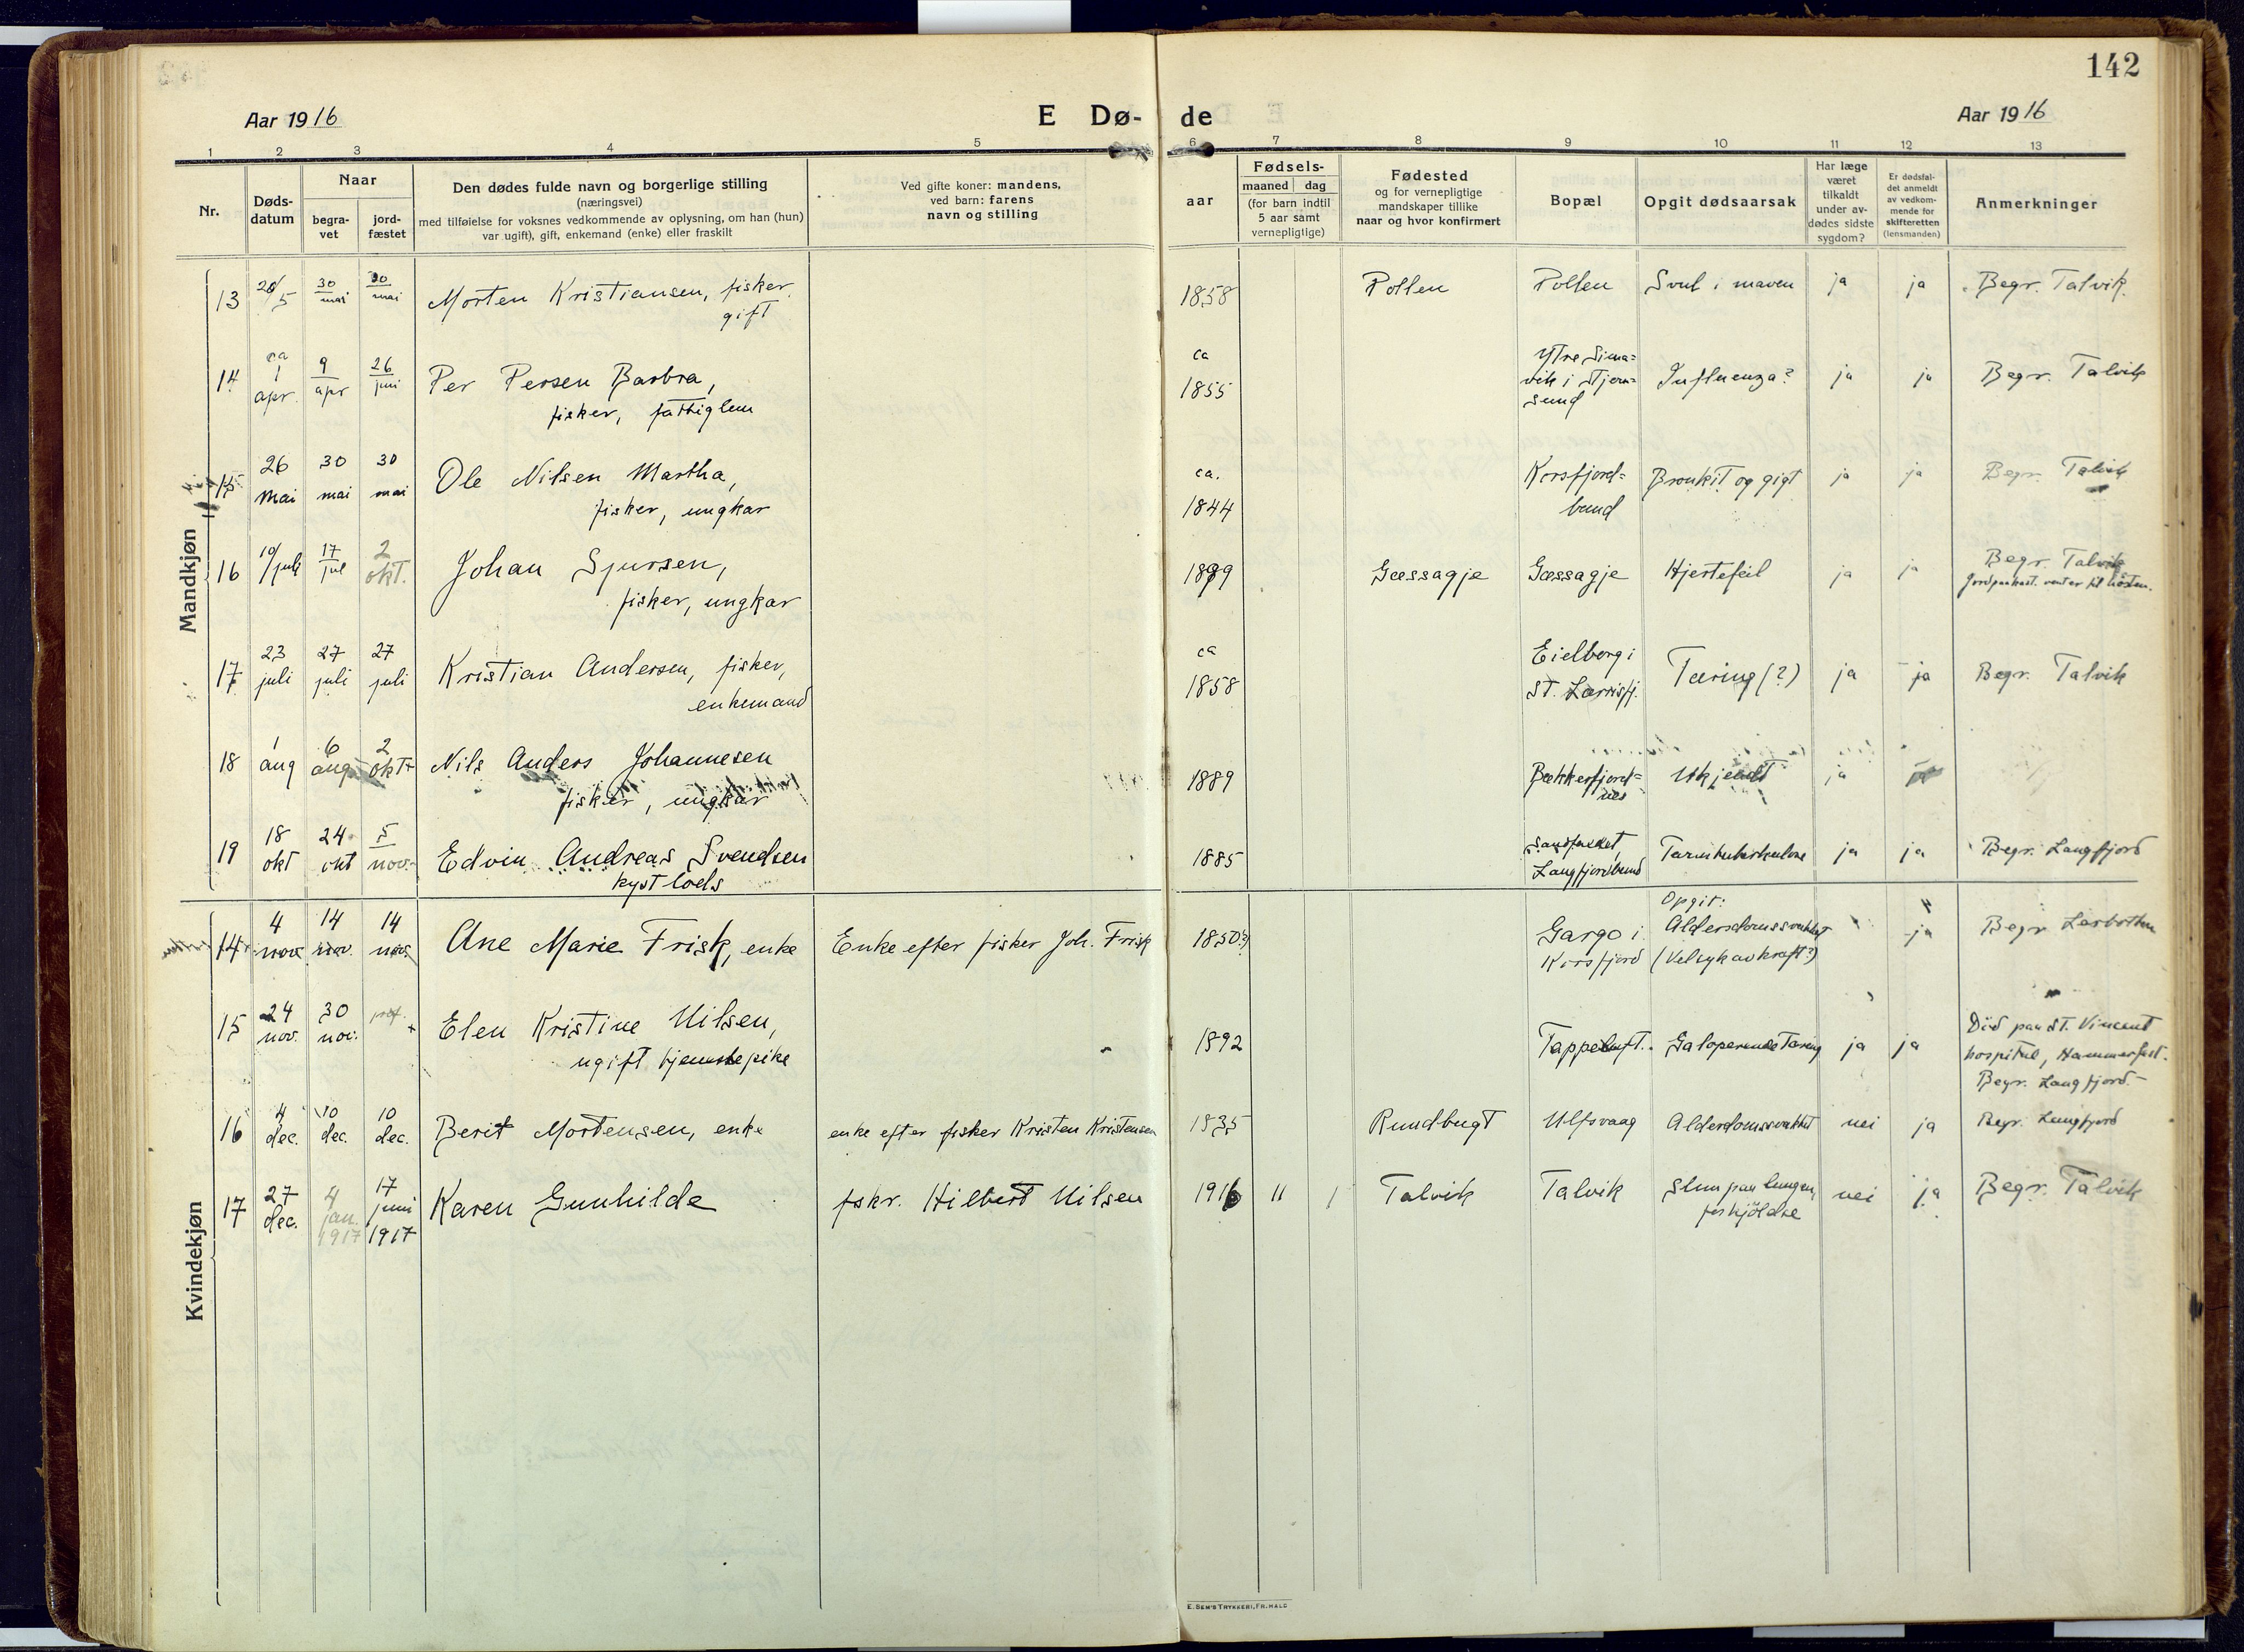 142
Aar 1916
E Dø- de
Aar 1916
1 2 3 4 5 6 7 8 9 10 11 12 13
Nr.
Døds-
datum
Naar
begra-
vet
jord-
fæstet
Den dødes fulde navn og borgerlige stilling
(næringsvei)
med tilføielse for voksnes vedkommende av oplysning, om han (hun)
var ugift), gift, enkemand (enke) eller fraskilt
Ved gifte koner: mandens,
ved barn: farens
navn og stilling
Fødsels-
aar
maaned dag
(for barn indtil
5 aar samt
vernepligtige)
Fødested
og for vernepligtige
mandskaper tillike
naar og hvor konfirmert
Bopæl
Opgit dødsaarsak
Har læge
været
tilkaldt
under av-
dødes sidste
sygdom?
Er dødsfal-
det anmeldt
av vedkom-
mende for
skifteretten
(lensmanden)
Anmerkninger
Mandkjøn
13 20/5 30 mai 30 mai Morten Kristiansen, fisker, 1858 Pollen Pollen Svul i maven ja ja Begr. Talvik.
gift
14 ca 1 apr. 9 apr 26 juni Per Persen Barbra, ca 1855 Ytre Sima=
vik i Stjern=
sund Influenza? ja ja Begr. Talvik
fisker, fattiglem
15 26 mai 30 mai 30 mai Ole Nilsen Martha, ca. 1844 Korsfjord=
bund Bronkit og gigt ja ja Begr. Talvik
fisker, ungkar
16 10/juli 17 jul 2 okt. Johan Sjursen, 1899 Gæssagje Gæssagje Hjertefeil ja ja Begr. Talvik
fisker, ungkar
17 23 juli 27 juli 27 juli Kristian Andersen, fisker, ca 1858 Eielberg i
St. Lærrisfj. Tæring (?) ja ja Begr. Talvik
enkemand
18 1 aug 6 aug 2 okt Nils Anders Johannesen 1889 Bækkerfjord=
nes Ukjendt ja
fisker, ungkar
19 18 okt 24 okt 5 nov. Edvin Andreas Svendsen 1885
Langfjordbund Tarmtuberkulose ja ja Begr. Langfjord
kystlods
Kvindekjøn
14 4 nov. 14 nov. 14 nov. Ane Marie Frisk, enke Enke efter fisker Joh. Frisk 1850(?) Gargo i
Korsfjord Opgit:
Alderdomssvakhet
ja Begr.
15 24 nov. 30 nov. Elen Kristine Nilsen, 1892 Tappeluft. Galoperende Tæring ja ja Död paa St. Vincent
hospital, Hammerfest.
Begr. Langfjord.
ugift tjenstepike
16 4 dec. 10 dec. 10 dec. Berit Mortensen, enke enke efter fisker Kristen Kristensen 1835 Rundbugt Ulfsvaag Alderdomssvakhet nei ja Begr. Langfjord
17 27 dec. 4 jan. 1917 17 juni 1917 Karen Gunhilde fskr. Hilbert Nilsen 1916 11 1 Talvik Talvik Slim paa lungen,
forkjölelse nei ja Begr. Talvik
E. SEM'S TRYKKERI, FR.HALD